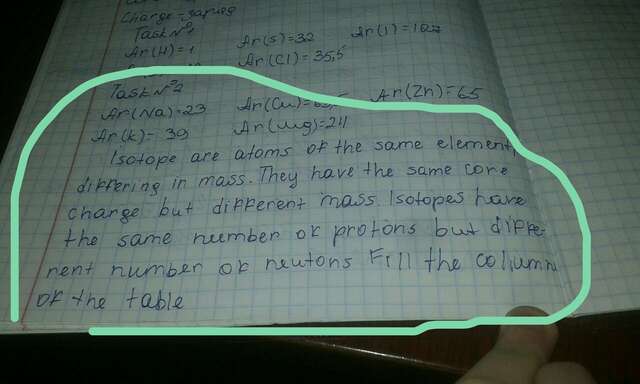 Charge - заряд
Task №1
Ar(H)=1 Ar(S)=32 Ar(I)=127
Ar(Cl)=35,5
Task №2
Ar(Na)=23 Ar(Cu)=63,5 Ar(Zn)=65
Ar(K)=39 Ar(Mg)=24
Isotope are atoms of the same element,
differing in mass. They have the same core
charge but different mass. Isotopes have
the same number of protons but diffe-
rent number of neutons Fill the column
of the table